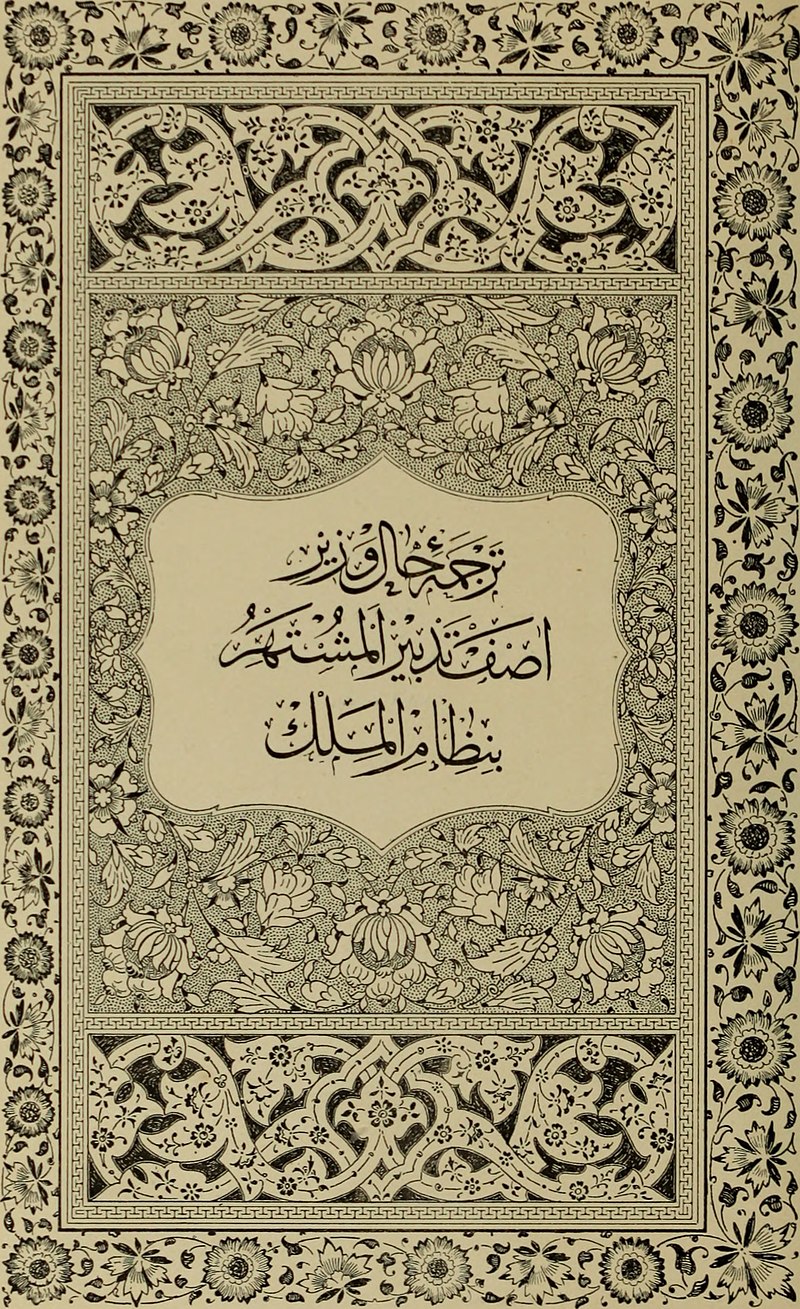 تَرْجَمَهٔ حَالِ وَزِيرِ
اصَفْ تَدْبِيرْ اَلْمُشْتَهَرُ
بِنِظَامِ الْمُلْكْ